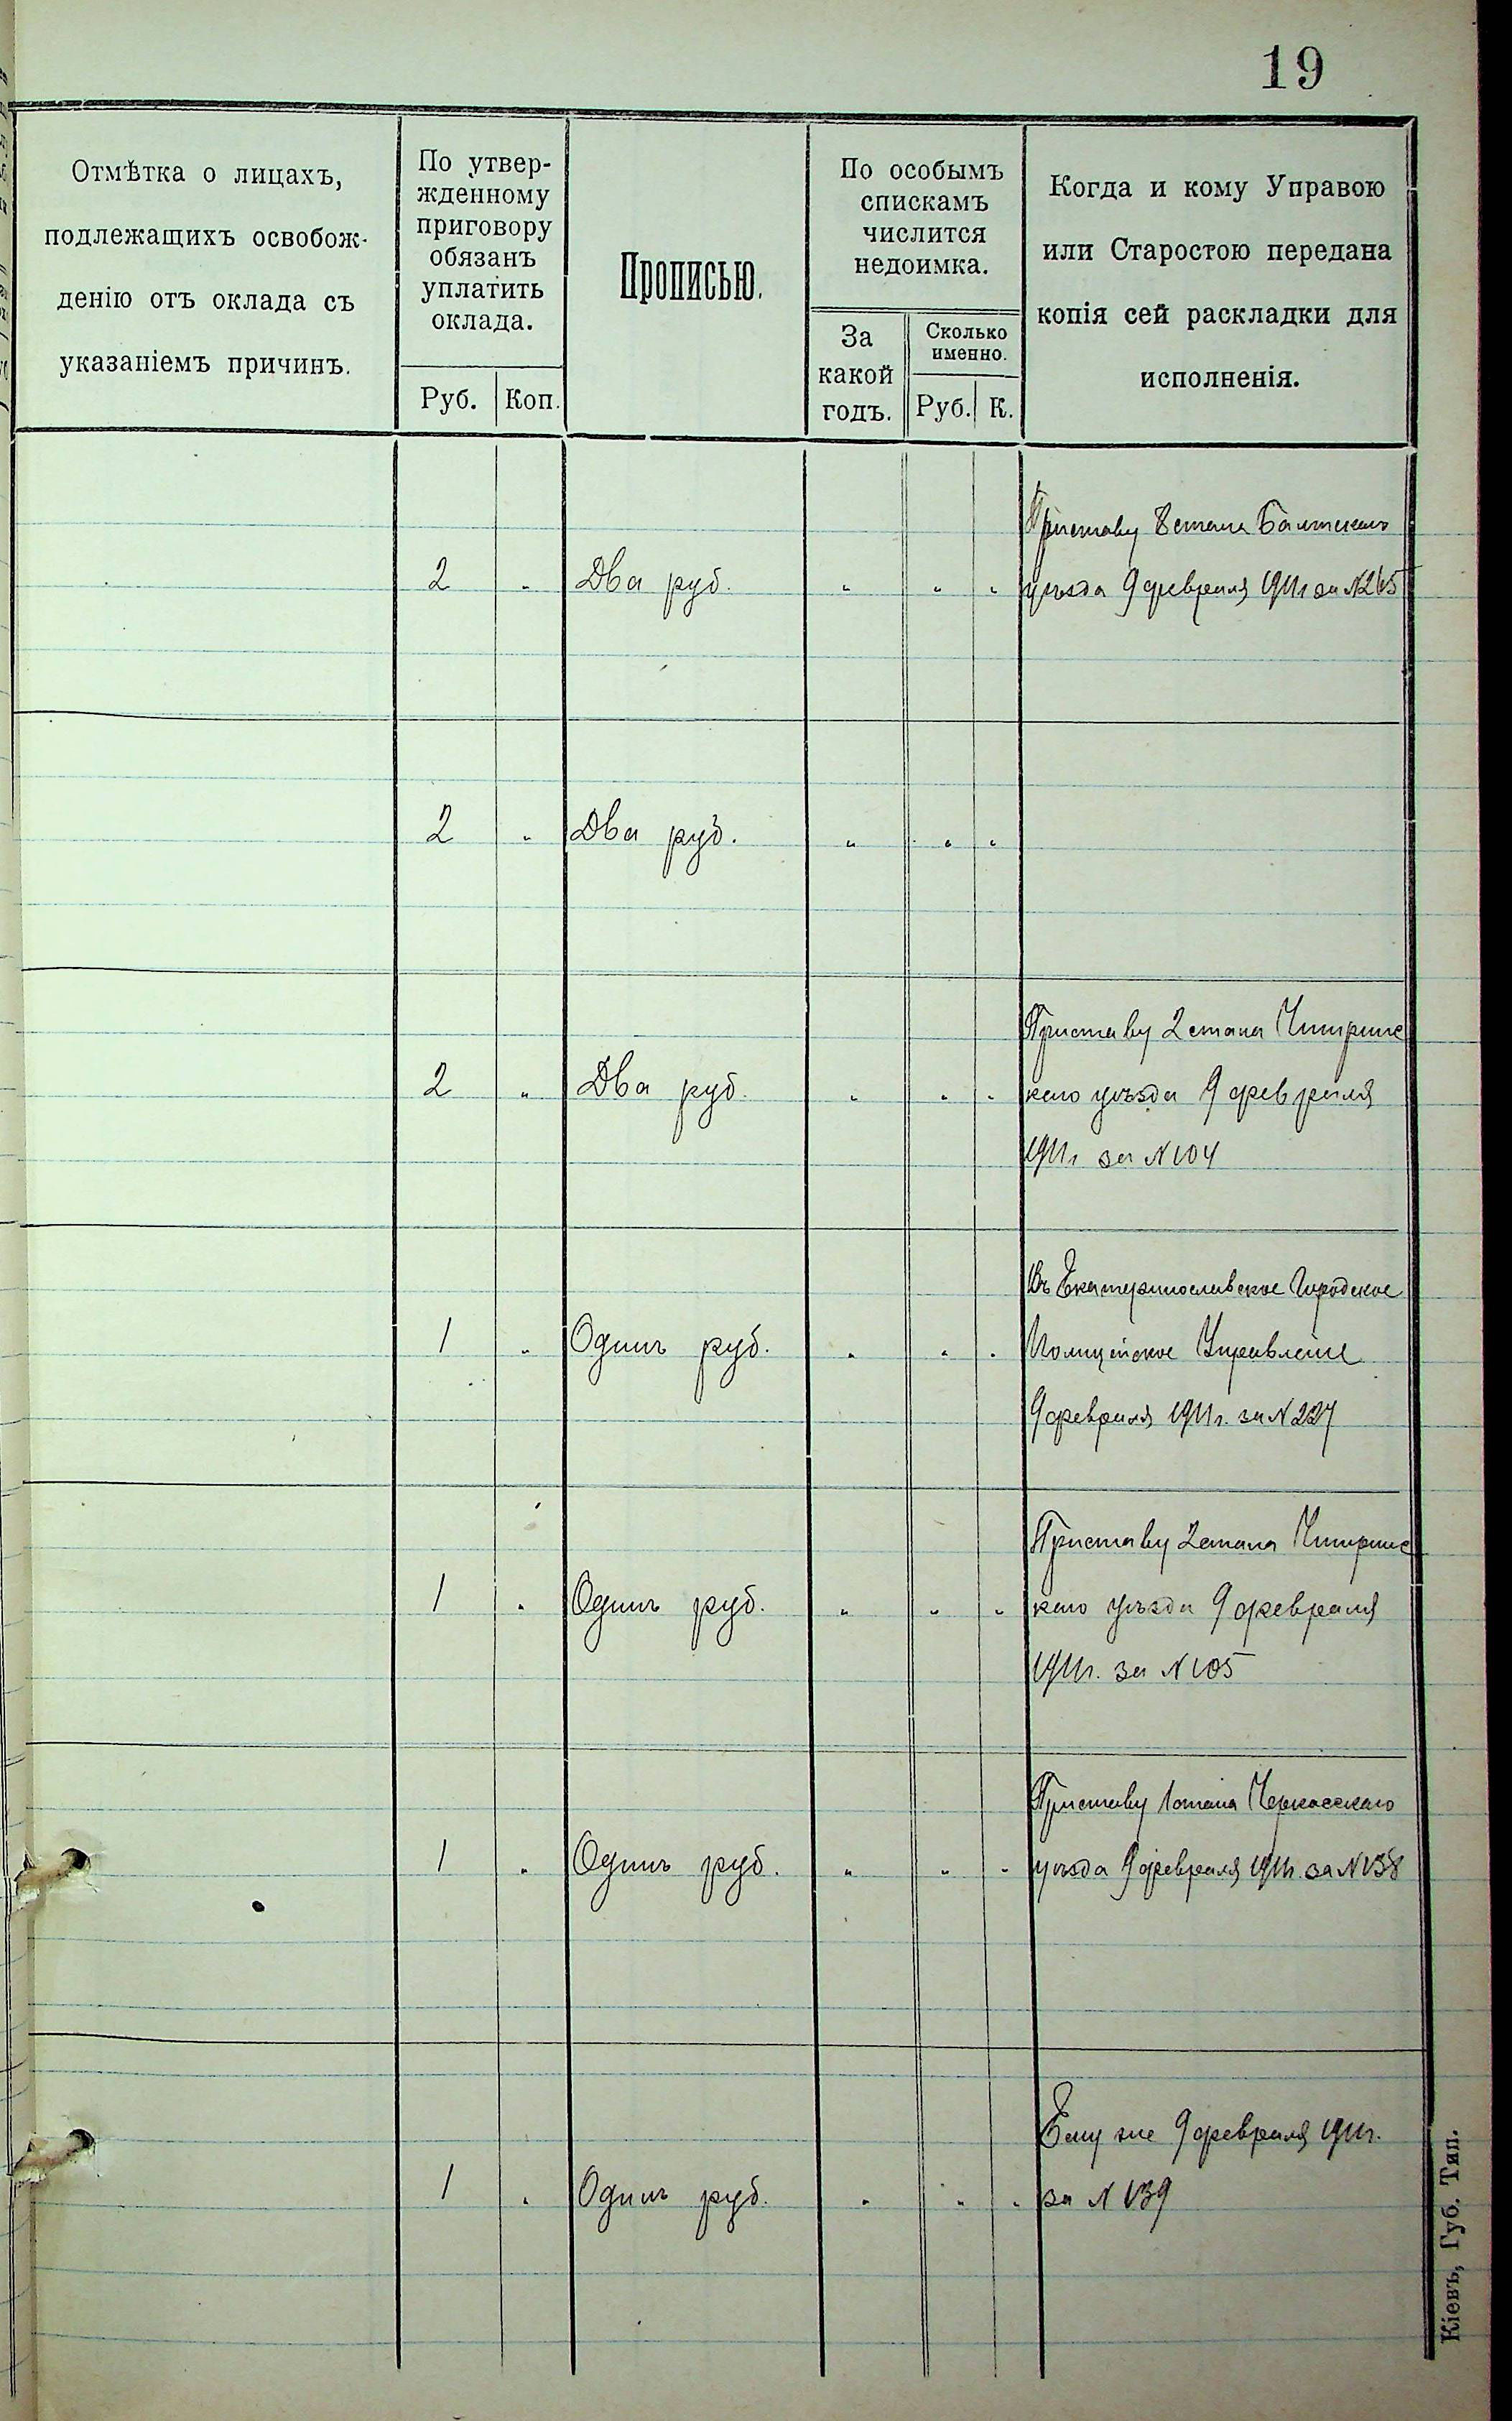 19
Отмѣтка о лицахъ,
подлежащихъ освобож-
денію отъ оклада съ
указаніемъ причинъ.
По утвер-
жденному
приговору
обязанъ
уплатить
оклада.
Руб. Коп.
Прописью.
По особымъ
спискамъ
числится
недоимка.
За
какой
годъ.
Сколько
именно.
Руб. К.
Когда и кому Управою
или Старостою передана
копія сей раскладки для
исполненія.
Приставу стана Балтскаго
2 " Два руб. " " " уѣзда 9 февраля 1911 г за №
2 " Два руб. " " "
Приставу 2 стана Чигринс
2 " Два руб. " " " каго уѣзда 9 февраля
1911 г за № 104
Въ Екатеринославское Городское
1 " Одинъ руб. " " " Полицейское Управленіе
9 февраля 1911 г. за № 227
Приставу 2 стана Чигринс
1 " Одинъ руб. " " " каго уѣзда 9 февраля
1911 г. за № 105
Приставу 1 стана Черкасскаго
1 " Одинъ руб. " " " уѣзда 9 февраля 1911 г. за № 138
Ему же 9 февраля 1911 г.
1 " Одинъ руб. " " " за № 139
Кіевъ, Губ. Тип.